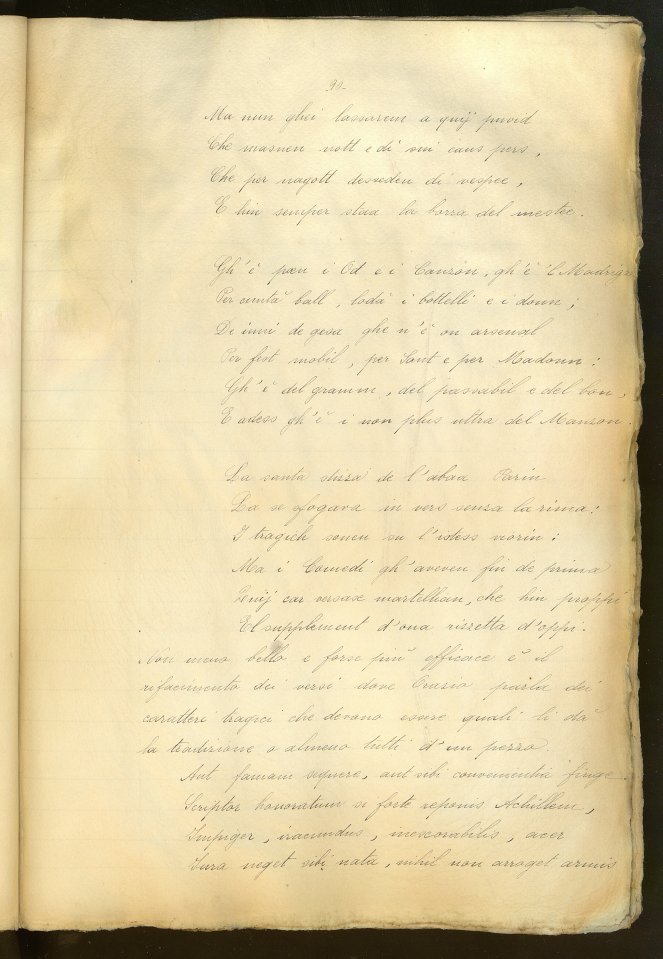 90-
Ma nun ghei lassarem a quij poved
Che masnen nott e dí sui caus pers,
Che per nagott desveden di vespee,
E hin semper staa la borra del mestee.
Gh'è pœu i Od e i Canzon, gh'è 'l Madrig
Per cuntà ball, lodà i bottelli e i donn;
Di inni de gesa ghe n'è on arsenal
Per fest mobil, per Sant e per Madonn:
Gh'è del gramm, del passabil e del bon,
E adess gh'è i non plus ultra del Manzon.
La santa stizza de l'abaa Parin
La se sfogava in vers senza la rima:
I tragich sonen su l'istess morin:
Ma i Comedi gh'aveven fin de prima
Quij car versax martellian, che hin proppi
El supplement d'ona rizzetta d'oppi.
Non meno bello e forse più efficace è il
rifacimento dei versi dove Orazio parla dei
caratteri tragici che devono essere quali li dà
la tradizione o almeno tutti d'un pezzo.
Aut famam sequere, aut sibi convenientia finge
Scriptor honoratum si forte reponis Achillem,
Impiger, iracundus, inexorabilis, acer
Jura neget sibi nata, nihil non arroget armis